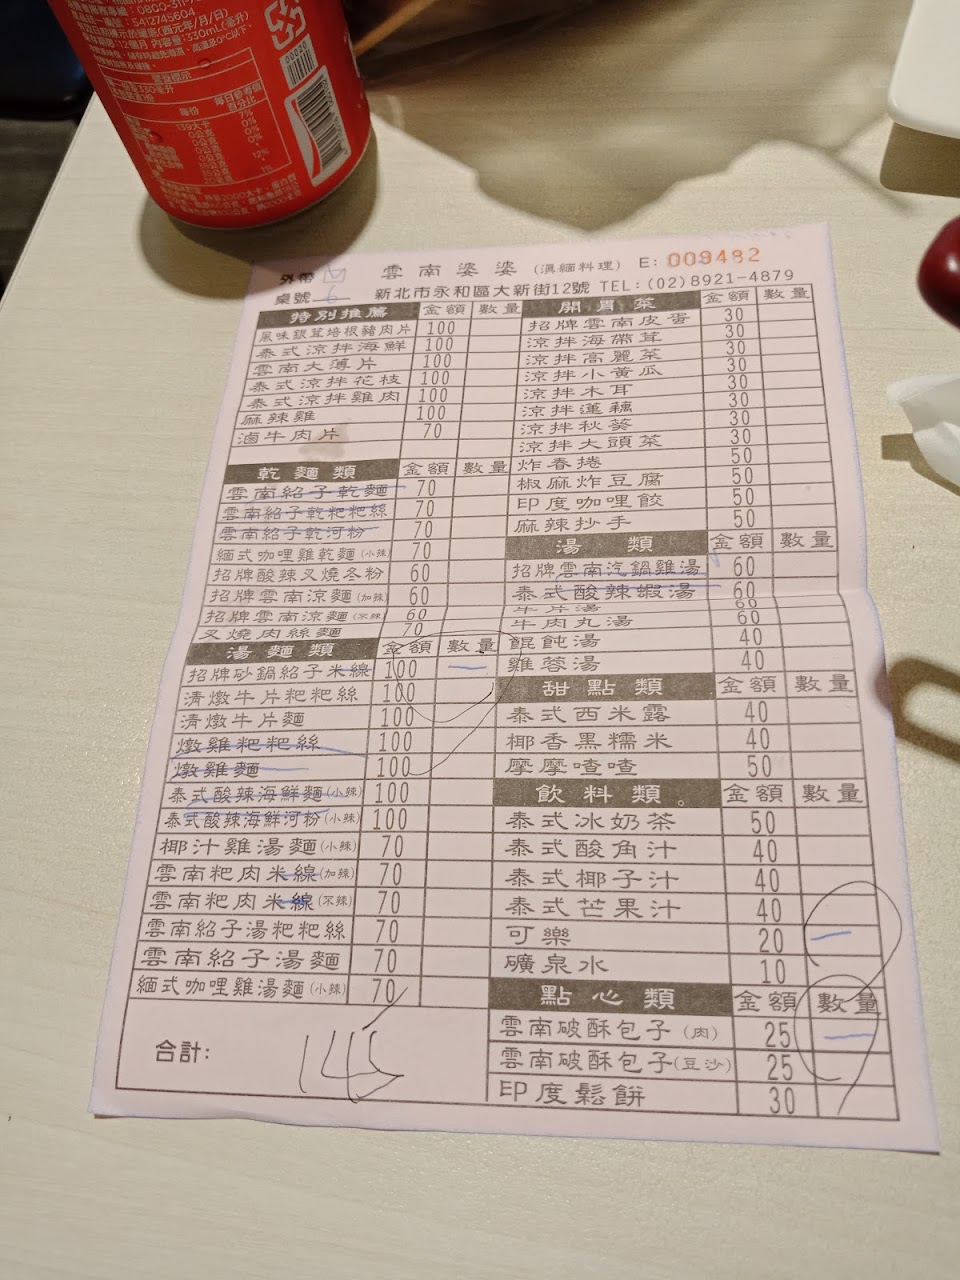 0800-311-
5412745604
(西元年/月/日)
12個月 內容量:330mL(毫升)
營養標示
每份
每日參考值
百分比
139大卡 7%
0公克 0%
0公克 0%
12%
1%
外帶
雲南婆婆 (滇緬料理) E: 009482
桌號 6
新北市永和區大新街12號 TEL:(02)8921-4879
特別推薦 金額 數量
風味銀茸培根豬肉片 100
泰式涼拌海鮮 100
雲南大薄片 100
泰式涼拌花枝 100
泰式涼拌雞肉 100
麻辣雞 100
滷牛肉片 70
乾麵類 金額 數量
雲南紹子乾麵 70
雲南紹子乾粑粑絲 70
雲南紹子乾河粉 70
緬式咖哩雞乾麵(小辣) 70
招牌酸辣叉燒冬粉 60
招牌雲南涼麵(加辣) 60
招牌雲南涼麵(不辣) 60
叉燒肉絲麵 70
湯麵類 金額 數量
招牌砂鍋紹子米線 100 一
清燉牛片粑粑絲 100
清燉牛片麵 100
燉雞粑粑絲 100
燉雞麵 100
泰式酸辣海鮮麵(小辣) 100
泰式酸辣海鮮河粉(小辣) 100
椰汁雞湯麵(小辣) 70
雲南粑肉米線(加辣) 70
雲南粑肉米線(不辣) 70
雲南紹子湯粑粑絲 70
雲南紹子湯麵 70
緬式咖哩雞湯麵(小辣) 70
合計: 145
開胃菜 金額 數量
招牌雲南皮蛋 30
涼拌海帶茸 30
涼拌高麗菜 30
涼拌小黃瓜 30
涼拌木耳 30
涼拌蓮藕 30
涼拌秋葵 30
涼拌大頭菜 30
炸春捲 50
椒麻炸豆腐 50
印度咖哩餃 50
麻辣抄手 50
湯類 金額 數量
招牌雲南汽鍋雞湯 60
泰式酸辣蝦湯 60
牛片湯 60
牛肉丸湯 60
餛飩湯 40
雞蓉湯 40
甜點類 金額 數量
泰式西米露 40
椰香黑糯米 40
摩摩喳喳 50
飲料類。 金額 數量
泰式冰奶茶 50
泰式酸角汁 40
泰式椰子汁 40
泰式芒果汁 40
可樂 20 一
礦泉水 10
點心類 金額 數量
雲南破酥包子(肉) 25 一
雲南破酥包子(豆沙) 25
印度鬆餅 30